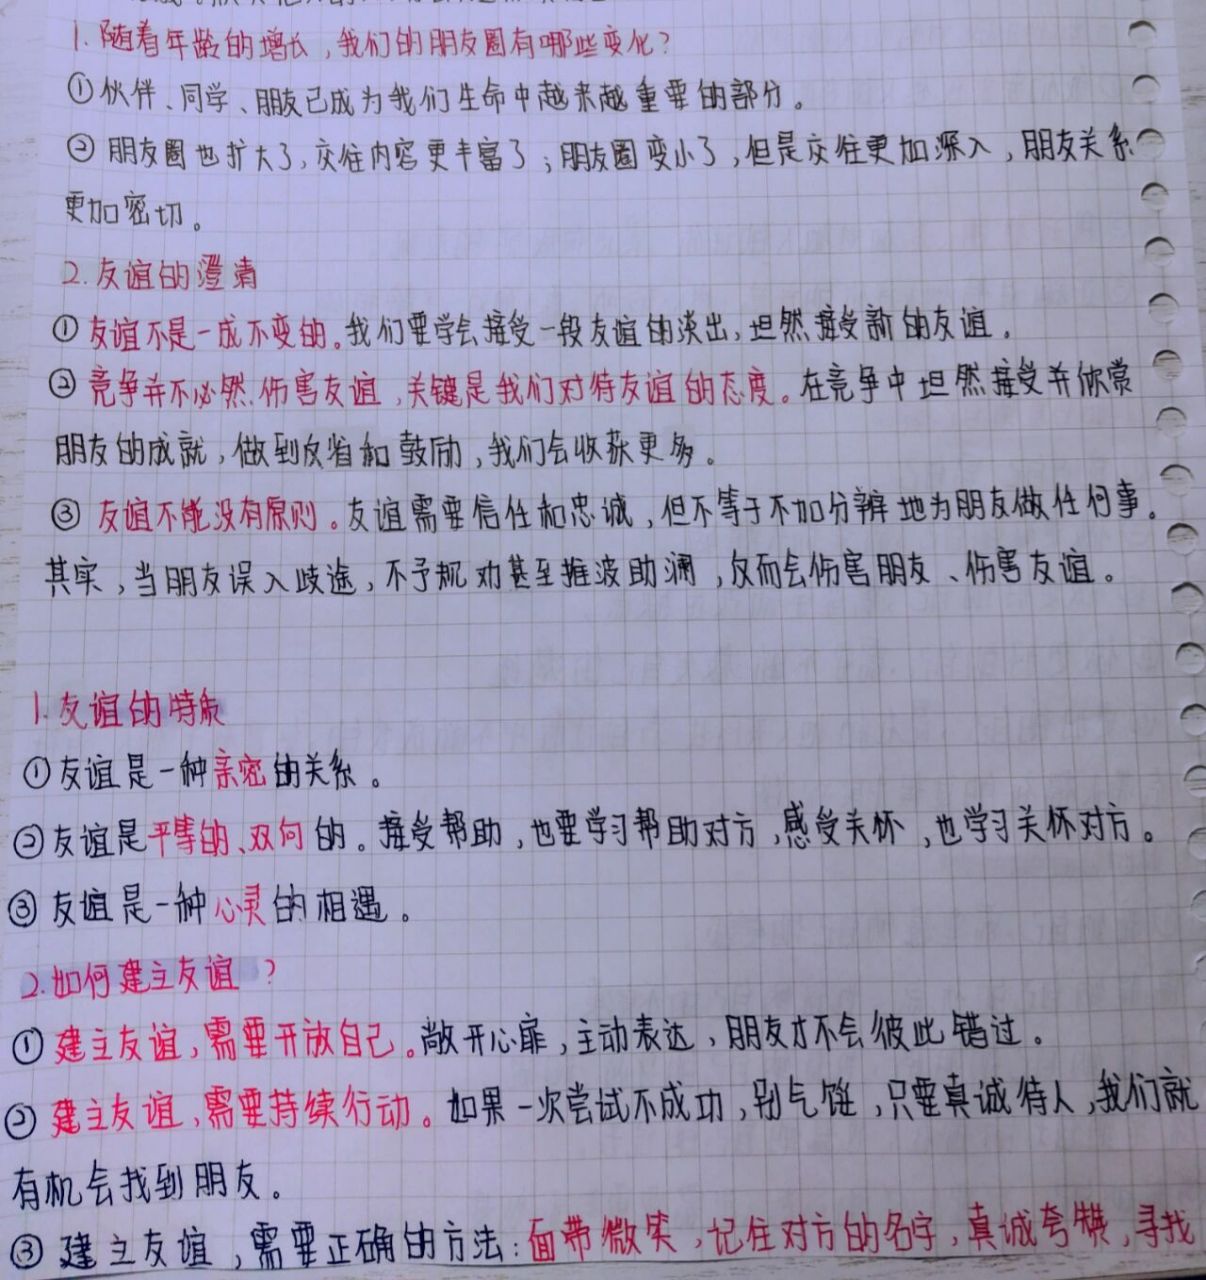 1.随着年龄的增长，我们的朋友圈有哪些变化？
①伙伴、同学、朋友已成为我们生命中越来越重要的部分。
②朋友圈也扩大了，交往内容更丰富了；朋友圈变小了，但是交往更加深入，朋友关系
更加密切。
2.友谊的澄清
①友谊不是一成不变的。我们要学会接受一段友谊的淡出，坦然接受新的友谊。
②竞争并不必然伤害友谊，关键是我们对待友谊的态度。在竞争中坦然接受并欣赏
朋友的成就，做到反省和鼓励，我们会收获更多。
③友谊不能没有原则。友谊需要信任和忠诚，但不等于不加分辨地为朋友做任何事。
其实，当朋友误入歧途，不予规劝甚至推波助澜，反而会伤害朋友、伤害友谊。
1.友谊的特质
①友谊是一种亲密的关系。
②友谊是平等的、双向的。接受帮助，也要学习帮助对方，感受关怀，也学习关怀对方。
③友谊是一种心灵的相遇。
2.如何建立友谊？
①建立友谊，需要开放自己。敞开心扉，主动表达，朋友才不会彼此错过。
②建立友谊，需要持续行动。如果一次尝试不成功，别气馁，只要真诚待人，我们就
有机会找到朋友。
③建立友谊，需要正确的方法：面带微笑，记住对方的名字，真诚夸赞，寻找